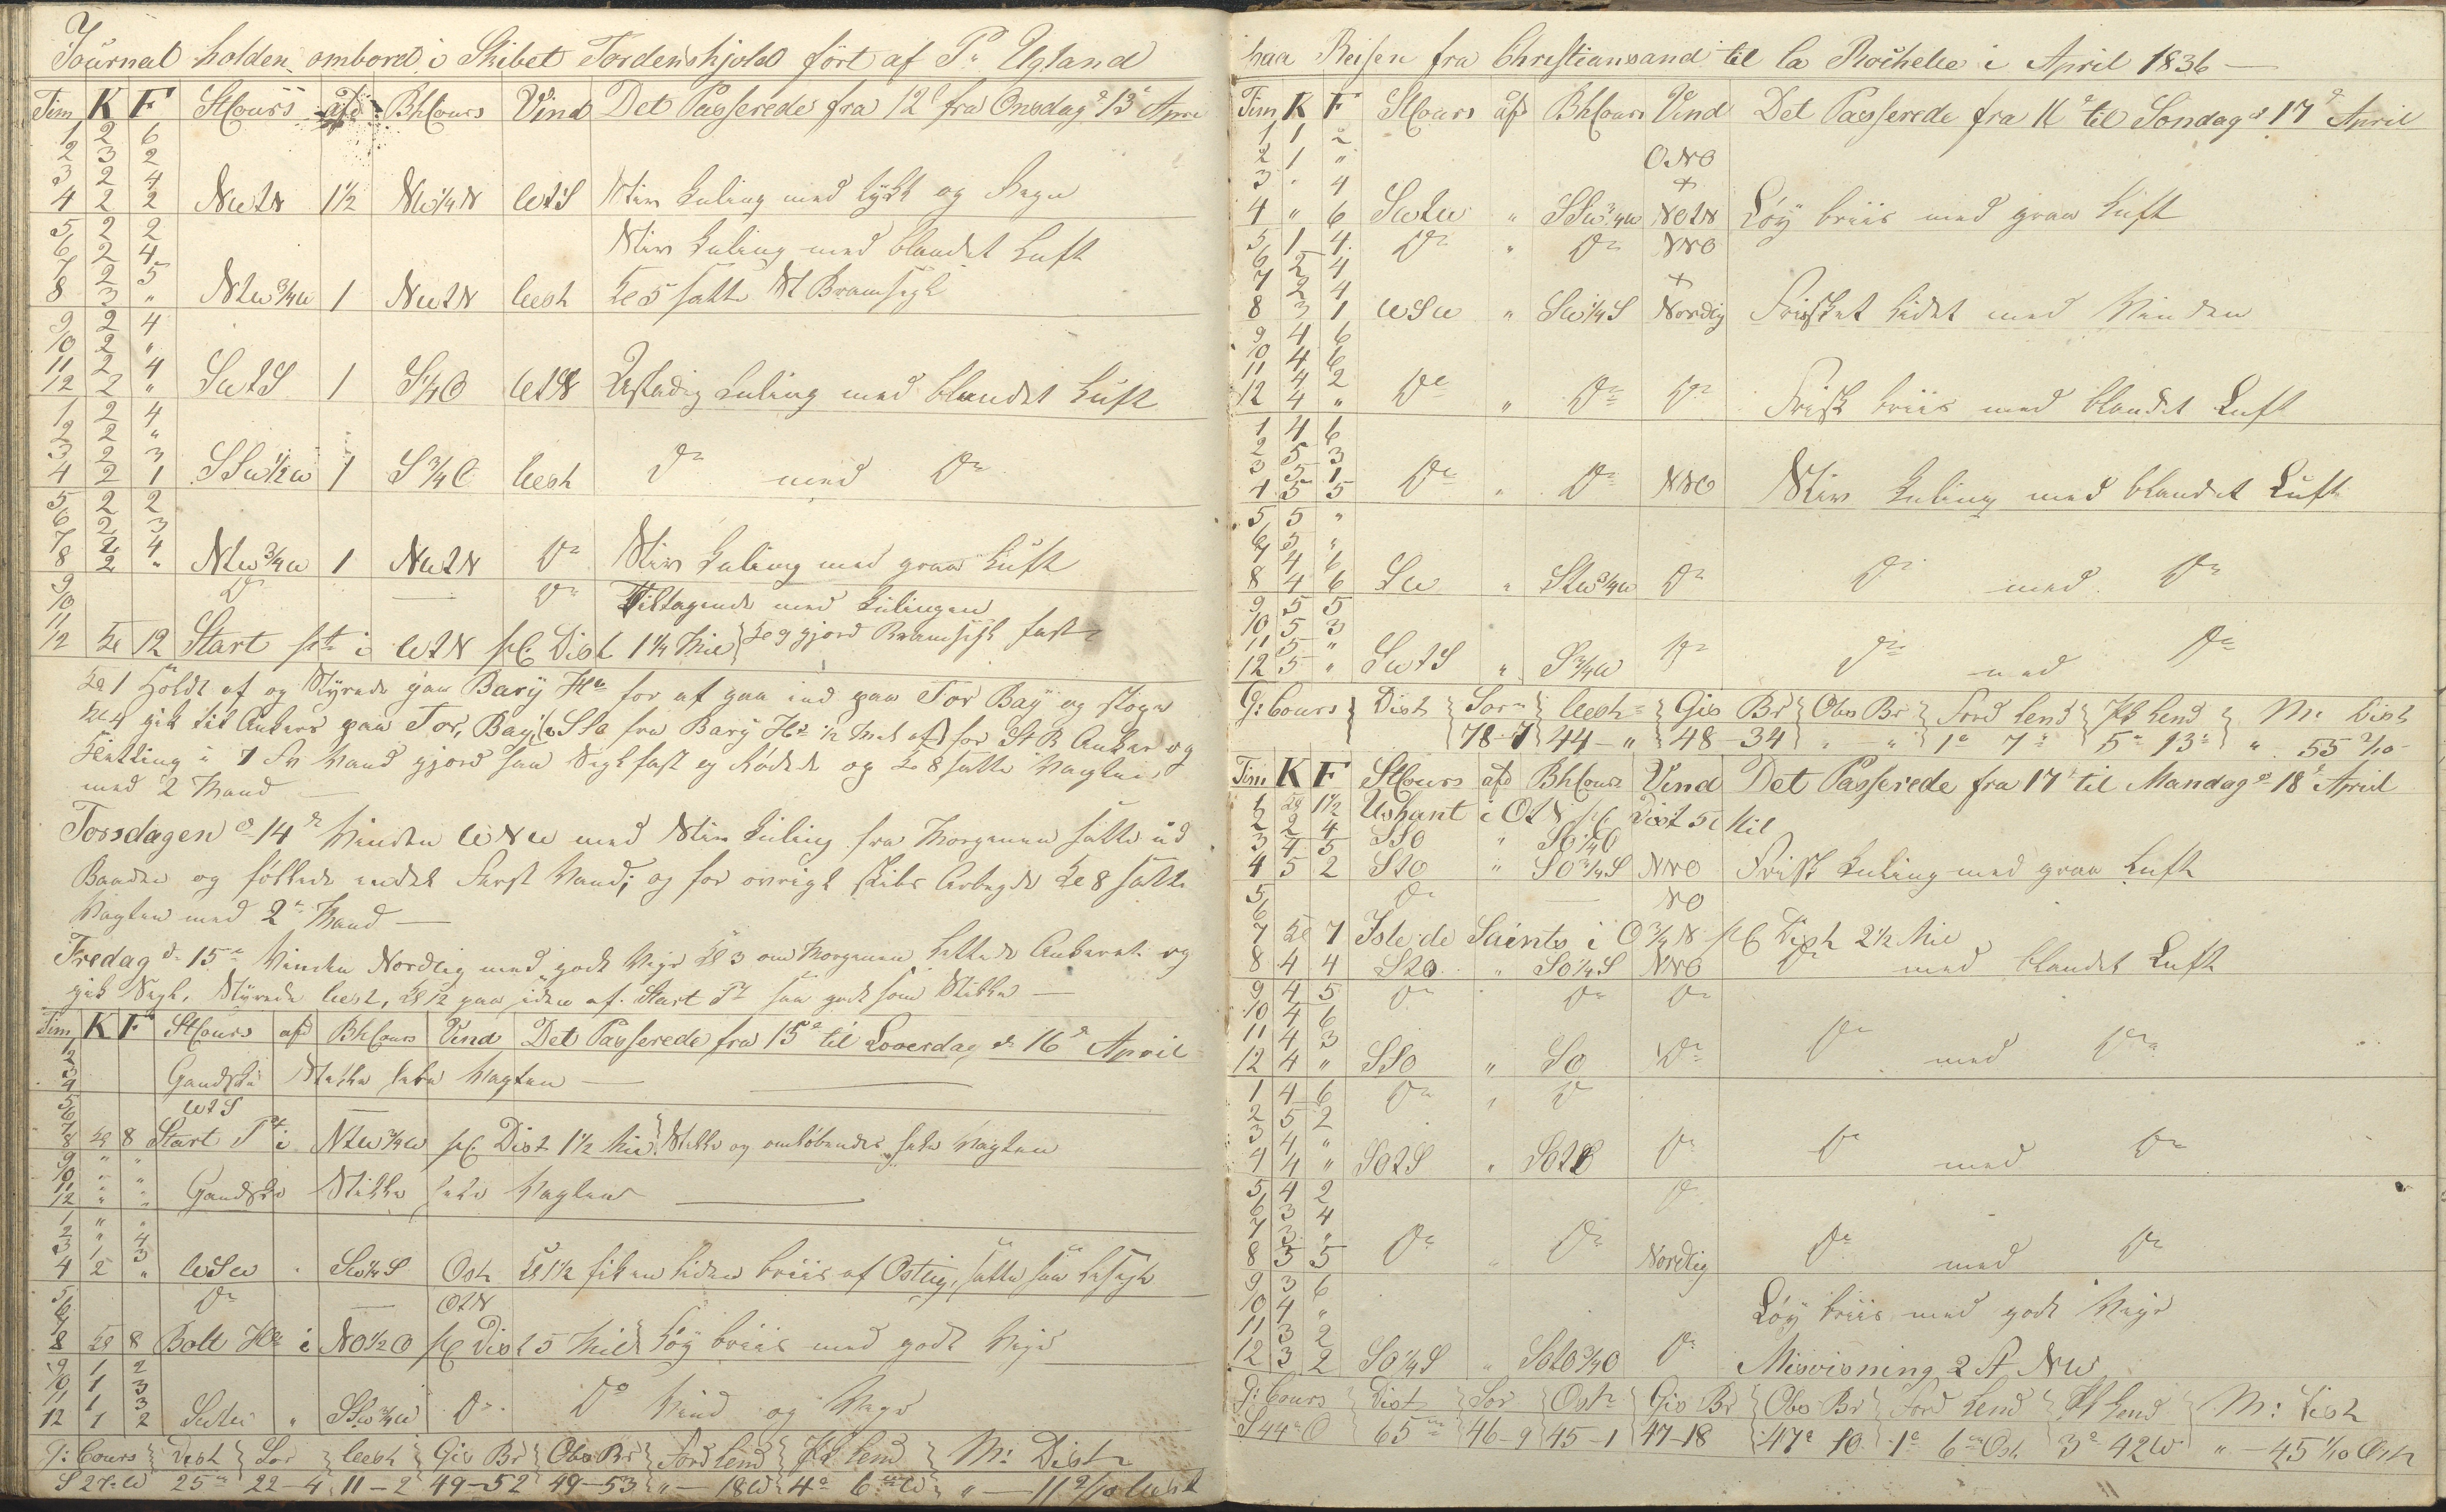 Journal holden ombord i Skibet Tordenskjold ført af P. Ugland
Tim K F StCours afd BhCours Vind Det Passerede fra 12 fra Onsdag d 13 April
1 2 6
2 3 2
3 2 4
4 2 2 NWtN 1½ NW¼N WtS Stiv Kuling med tykt og Regn
5 2 2 Stiv Kuling med blandet Luft
6 2 4
7 2 5
8 3 " NtW¾W 1 NWtN West Kl 5 satte St Bramsegl
9 2 4
10 2 "
11 2 4
12 2 " SWtS 1 S¼O WtN Ustadig Kuling med blandet Luft
1 2 4
2 2 "
3 2 3
4 2 1 SSW½W 1 S¾O West Do med Do
5 2 2
6 2 3
7 2 4
8 2 " NtW¾W 1 NWtN Do Stiv Kuling med graa Luft
9 Do Do Tiltagende med Kulingen
10
11
12 Kl 12 Start pt i WtN pC Dist 1¼ Mil Kl 9 gjord Bramsegl fast
Kl 1 holdt af og Styrede paa Bary Hd for at gaa ind paa Tor Bay og
Kl 4 gik til Ankers paa Tor Bay fra Bary Hd ½ Mil af for St B Anker og
Kietting i 7 Fv Vand gjord saa Segl fast og Kl 8 satte Vagten
med 2 Mand
Torsdagen d 14 Vinden WNW med Stiv Kuling fra Morgenen satte ud
Baaden og følte endel Fersk Vand; og for øvrigt skibs Arbeyde Kl 8 satte
Vagten med 2 Mand
Fredag d 15 Vinden Nordlig med godt Veyr Kl 3 om Morgenen lettede Ankeret og
gik Segl, Styrede West, Kl 12 paa siden af Start Pt saa godt som Stille
Tim K F StCours afd BhCours Vind Det Passerede fra 15 til Loverdag d 16 April
1
2
3
4 Gandske Stille hele Vagten
5 WtS
6
7
8 Kl 8 Start Pt i NtW¾W pC Dist 1½ Mil Stille og omløbende hele Vagten
9 " "
10 " "
11 " "
12 " " Gandske Stille hele Vagten
1 " "
2 " 4
3 1 3
4 2 " WSW " SW¼S Ost Kl 1½ fik en liden briis af Ostlig, satte saa
5 Do OtN
6
7
8 Kl 8 Bolt Hd i NO½O pC Dist 5 Mil Løy briis med godt Veyr
9 1 2
10 1 3
11 1 3
12 1 2 SWtW " SSW¾W Do Do Vind og Veyr
G: Cours Dist Sør West Gis Br Obs Br Ford Lend PC Lend M: Dist
S 27 W 25 22-4 11-2 49-52 49-53 "-18W 4° 6 W "-11 2/10 West
paa Reisen fra Christiansand til la Rochelle i April 1836
Tim K F StCours afd BhCours Vind Det Passerede fra 16 til Søndag d 17 April
1 1 2
2 1 " ONO
3 " 4
4 " 6 SWtW " SSW¾W NOtN Løy briis med graa Luft
5 1 4 Do " Do NNO
6 2 4
7 2 4
8 3 1 WSW " SW¼S Nordlig Frisket lidet med Vinden
9 4 6
10 4 6
11 4 2
12 4 " Do " Do Do Frisk briis med blandet Luft
1 4 6
2 5 3
3 5 1
4 5 5 Do " Do NNO Stiv Kuling med blandet Luft
5 5 "
6 5 "
7 4 6
8 4 6 SW " StW¾W Do Do med Do
9 5 5
10 5 3
11 5 "
12 5 " SWtS " S¾W Do Do med Do
G: Cours Dist Sør West Gis Br Obs Br Ford Lend PC Lend M: Dist
78-7 44-" 48-34 " " 1° 7 5° 13 " 55 2/10
Tim K F StCours afd BhCours Vind Det Passerede fra 17 til Mandag d 18 April
1 Kl 1½ Ushant i OtN pC Dist 5 Mil
2 2 4
3 4 5 SSO " SO¼O
4 5 2 StO " SO¾S NNO Frisk Kuling med graa Luft
5 Do NO
6
7 Kl 7 Isle de Saints i O¾N pC Dist 2½ Mil
8 4 4 StO " SO¼S NNO Do med blandet Luft
9 4 5 Do " Do Do
10 4 6
11 4 3
12 4 " SSO " SO Do Do med Do
1 4 6 Do " Do
2 5 2
3 4 "
4 4 " SOtS " SOtO Do Do med Do
5 4 2 Do
6 3 4
7 3 "
8 3 5 Do " Do Nordlig Do med Do
9 3 6
10 4 " Løy briis med godt Veyr
11 3 2
12 3 2 SO¼S " SOtO¾O Do Misvisning 2 St NW
G: Cours Dist Sør Ost Gis Br Obs Br Ford Lend PC Lend M: Dist
S 44° O 65 46-9 45-1 47-18 47° 10 1° 6 Ost 3° 42W "-45 1/10 Ost